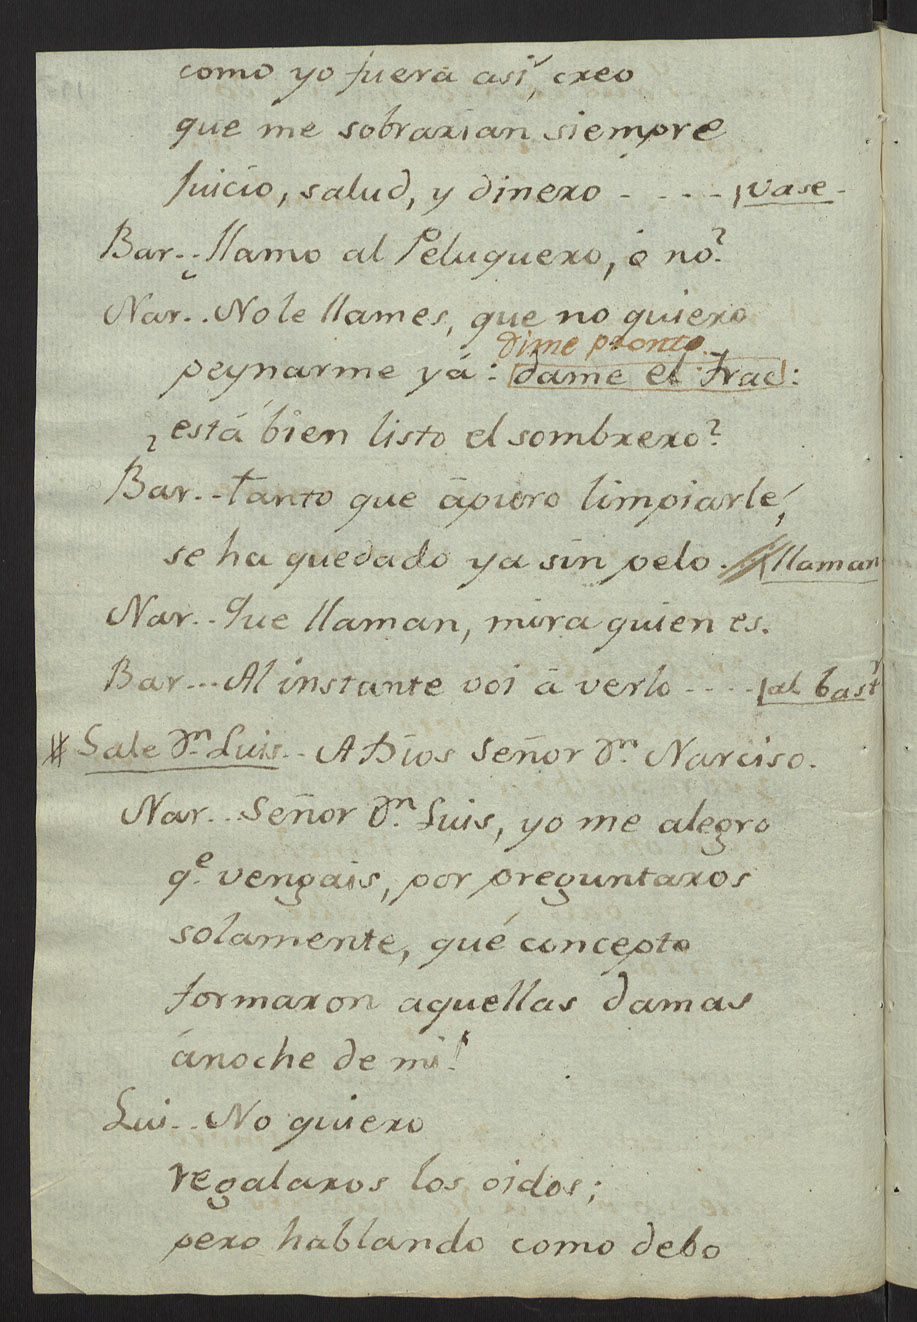 como yo fuera así, creo
que me sobrarian siempre
Juicio, salud, y dinero - - - - vase -
Bar.. ¿llamo al Peluquero, ó no?
Nar.. No le llames, que no quiero
dime pronto.
peynarme yá: dame el frac:
¿está bien listo el sombrero?
Bar.. tanto que ápuro limpiarle,
se ha quedado ya sin pelo. llaman
Nar.. Que llaman, mira quien es.
Bar... Al instante voi á verlo - - - - al bast.r
# Sale Dn. Luis.. A Dios Señor Dn. Narciso.
Nar... Señor Dn. Luis, yo me alegro
qe. vengais, por preguntaros
solamente, qué concepto
formaron aquellas damas
ánoche de mi?
Lui... No quiero
regalaros los oidos;
pero hablando como debo